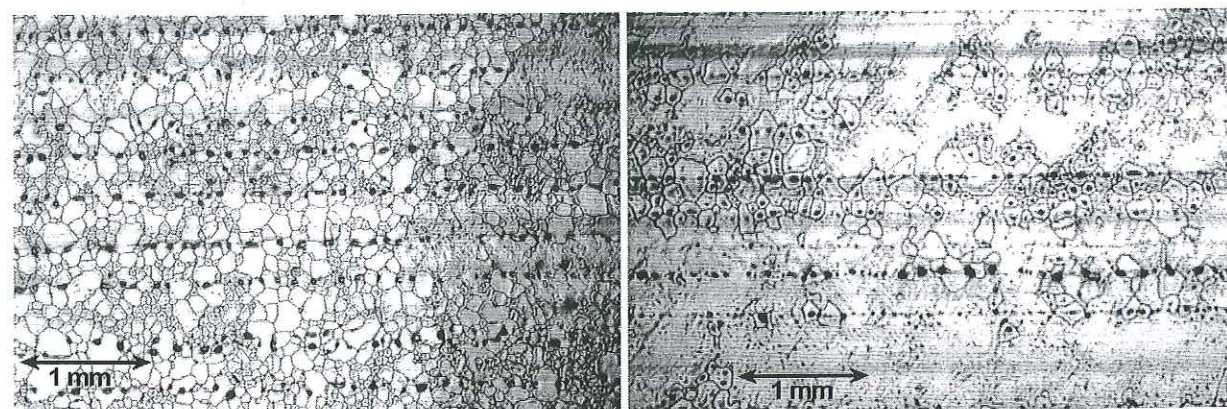 1 mm
1 mm